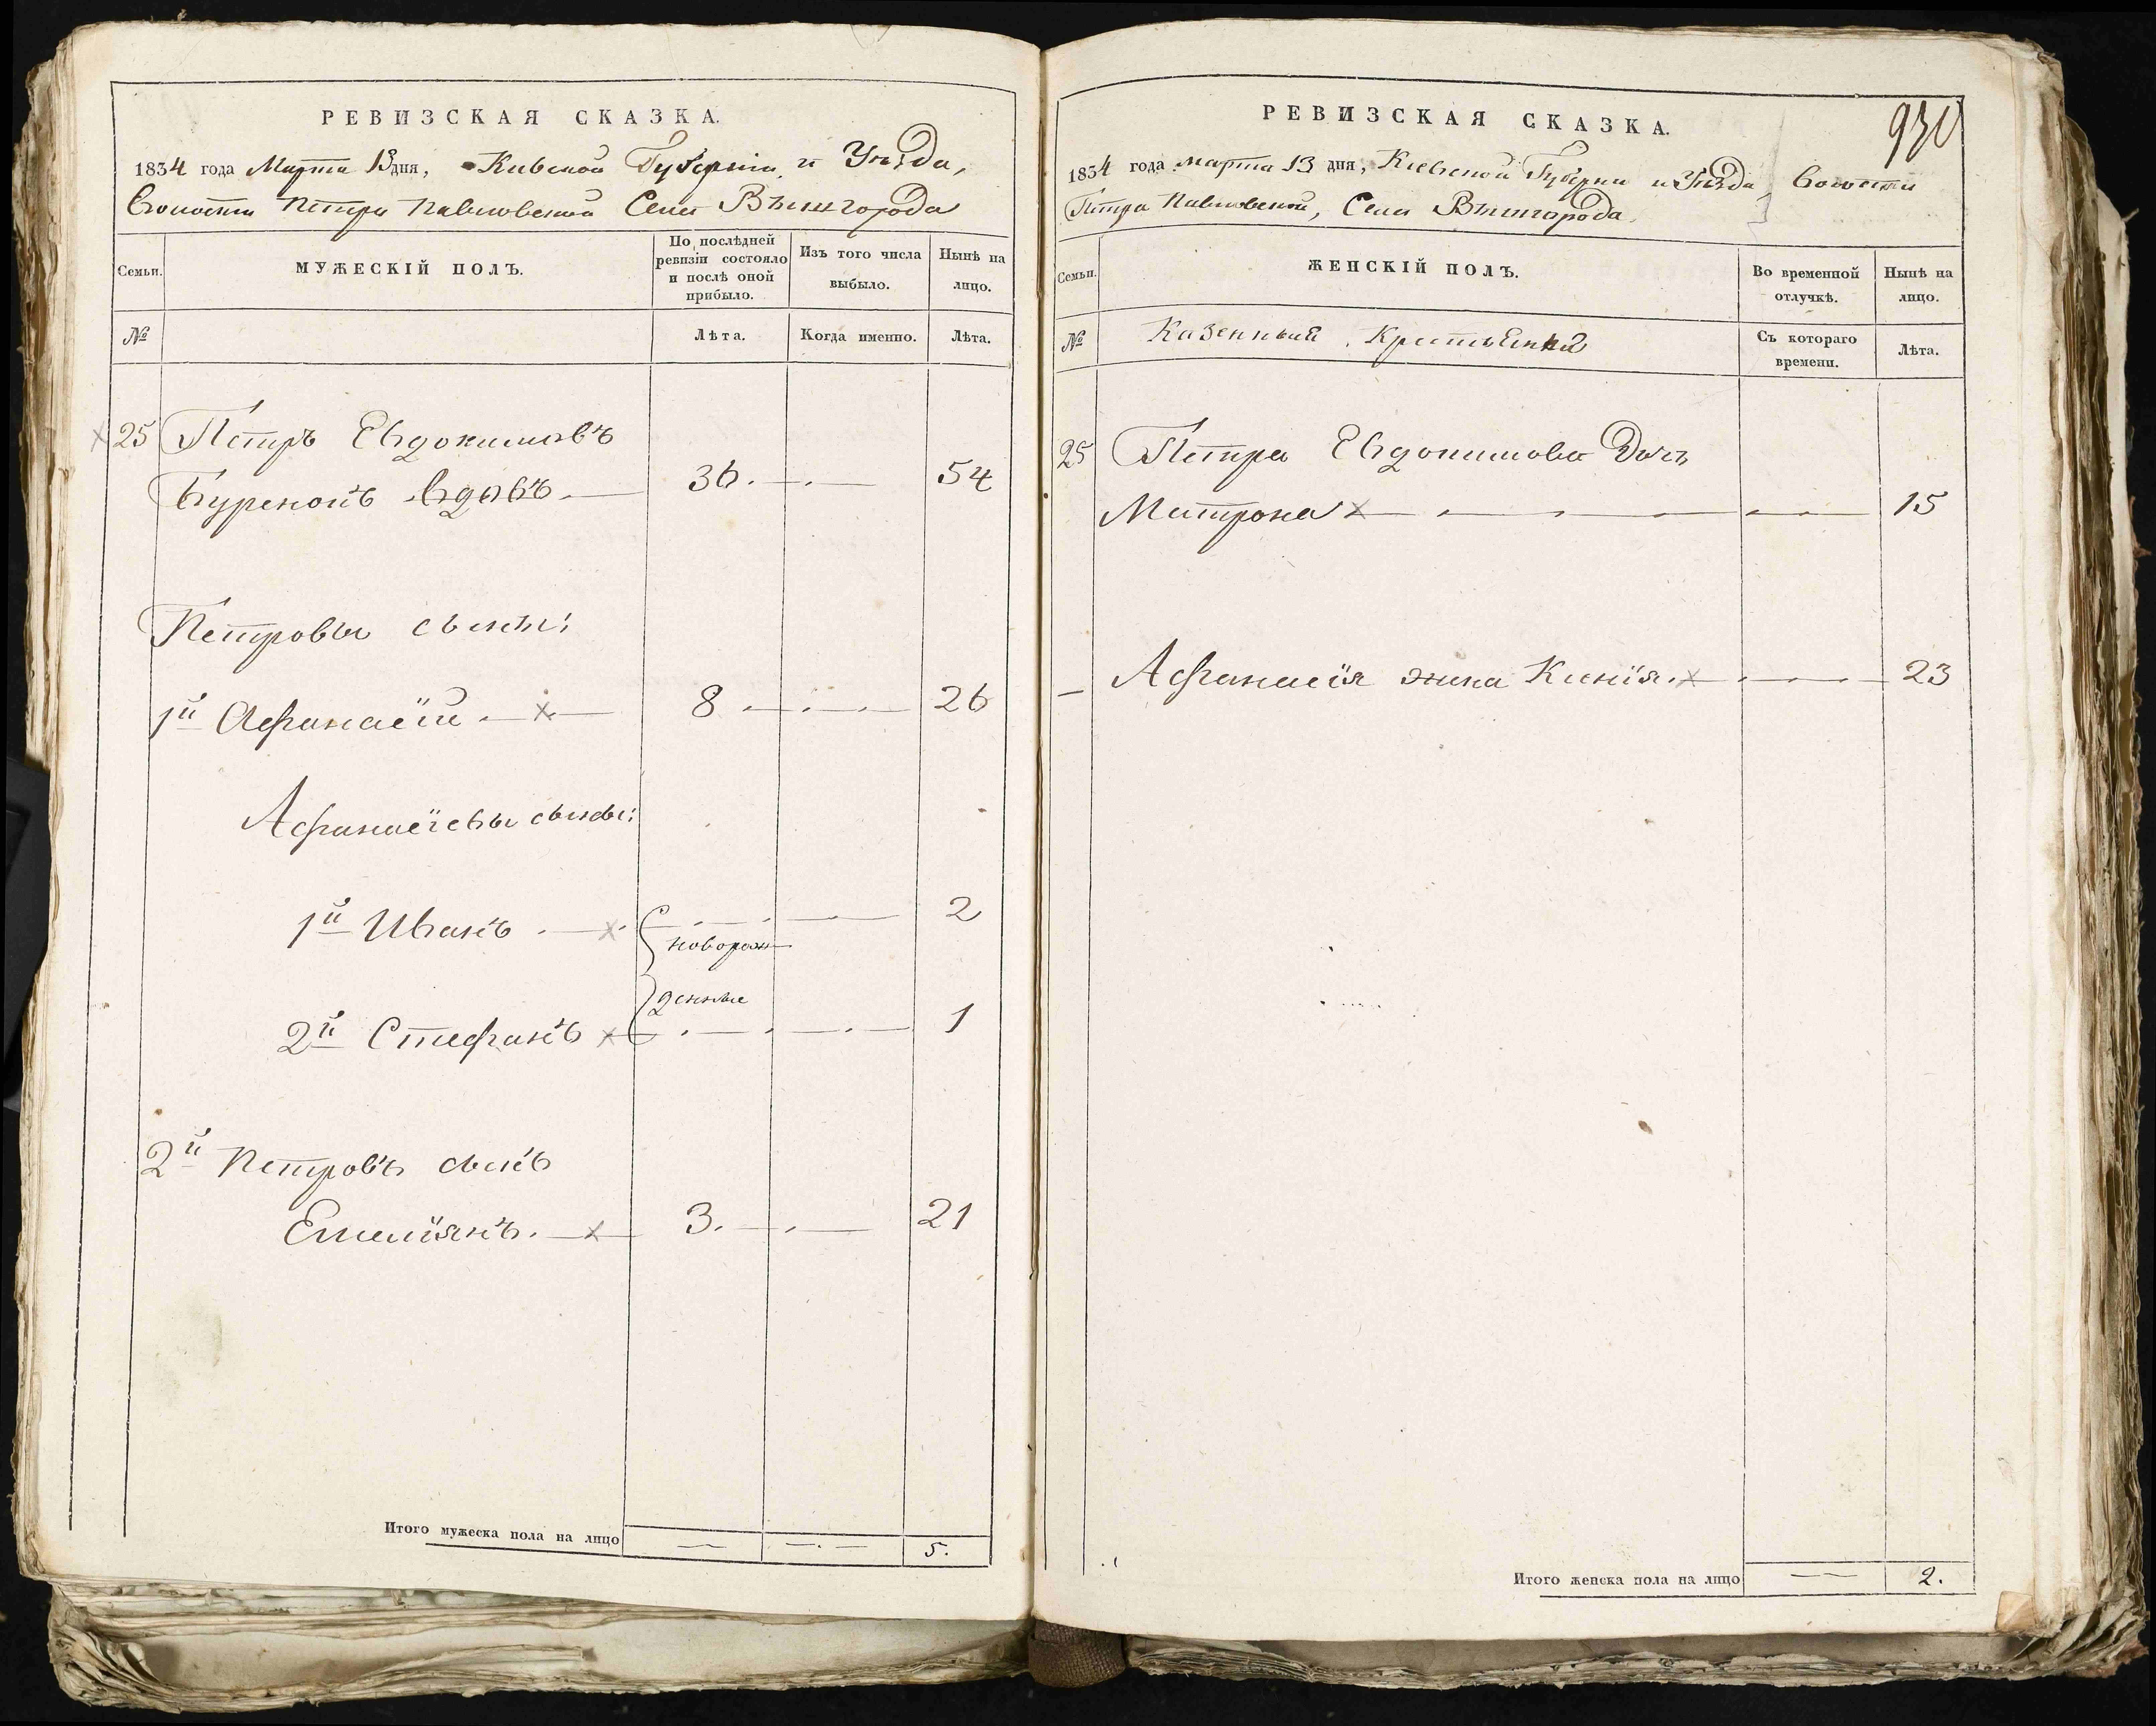 РЕВИЗСКАЯ СКАЗКА.
1834 года Марта 13 дня, Киевской Губернии и Уѣзда,
Волости Петро Павловской Села Вышгорода
Семьи.
МУЖЕСКІЙ ПОЛЪ.
По послѣдней
ревизіи состояло
и послѣ оной
прибыло.
Изъ того числа
выбыло.
Нынѣ на
лицо.
№
Лѣта.
Когда именно.
Лѣта.
25 Петръ Евдокимовъ
вдовъ. 36. 54
Петровы сыны:
1й Афанасій 8 26
Афанасіевы сыны:
1й Иванъ 2
новорож
денные
2й Стефанъ 1
2й Петровъ сынъ
Емеліянъ. 3. 21
Итого мужеска пола на лицо 5.
930
РЕВИЗСКАЯ СКАЗКА.
1834 года марта 13 дня, Киевской Губернии и Уѣзда, Волости
Петро Павловской, Села Вышгорода.
Семьи.
ЖЕНСКІЙ ПОЛЪ.
Во временной
отлучкѣ.
Нынѣ на
лицо.
№
Съ котораго
времени.
Лѣта.
25 Петра Евдокимова Дочь
Матрона 15
Афанасія жена Ксенія. 23
Итого женска пола на лицо 2.